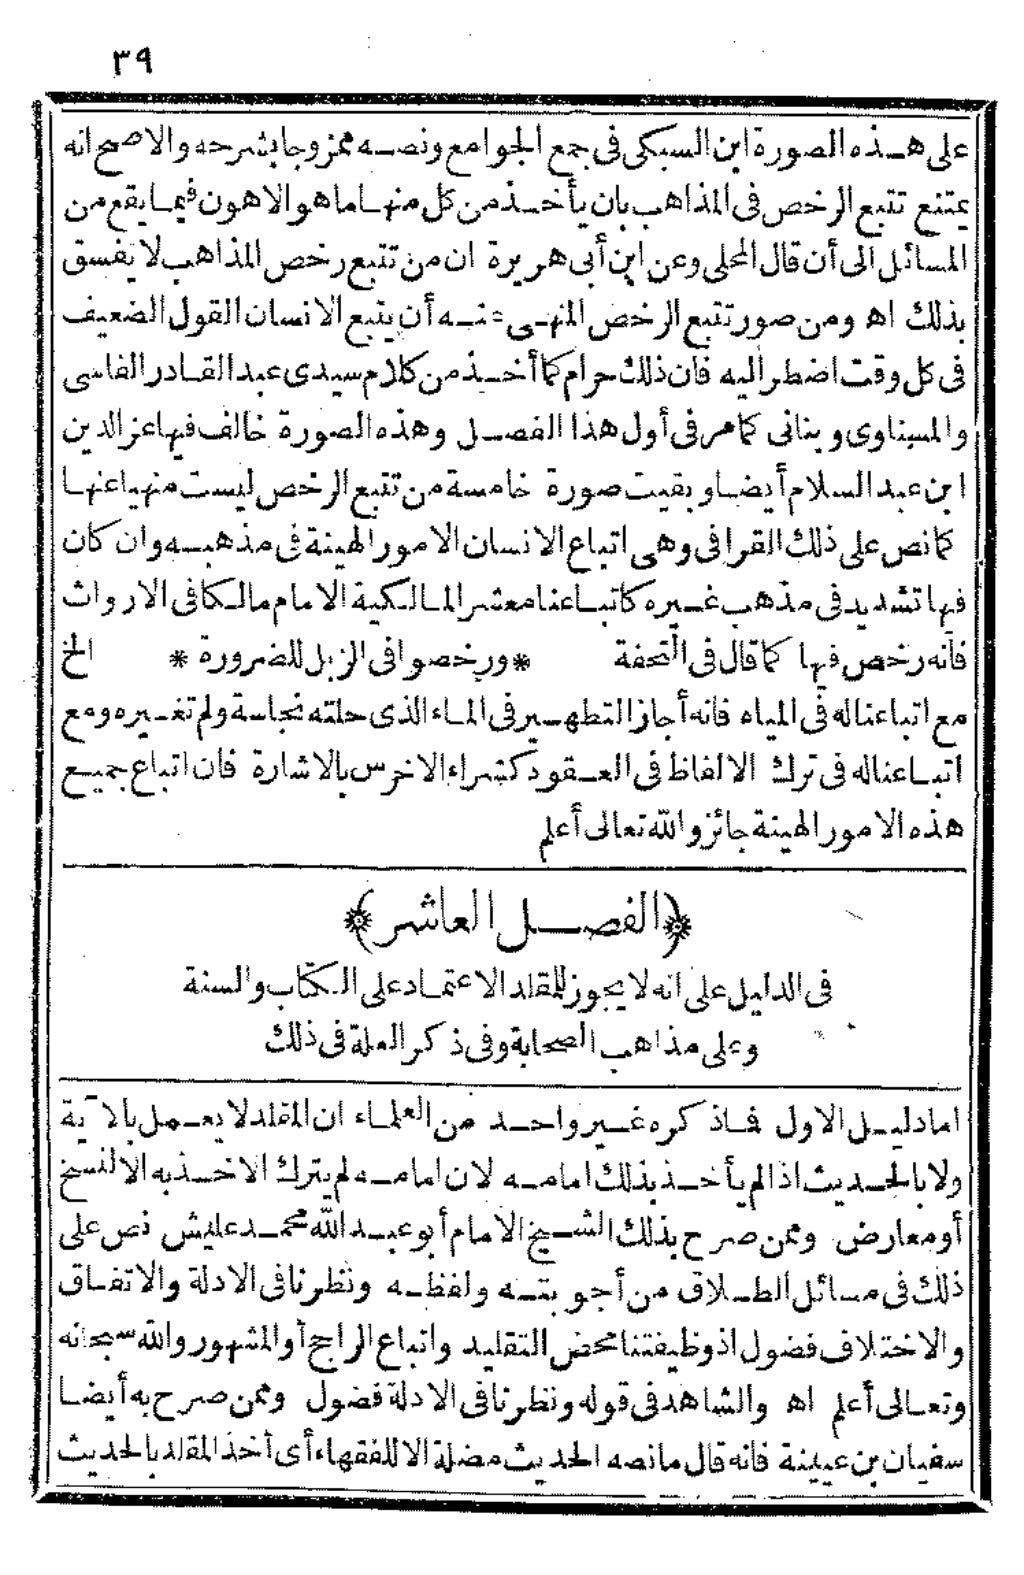 ٣٩
على هذه الصورة ابن السبكى فى جمع الجوامع ونصه ممزوجا بشرحه والاصح انه
يمتنع تتبع الرخص فى المذاهب بان يأخذ من كل منها ما هو الاهون فيما يقع من
المسائل الى أن قال المحلى وعن ابن أبى هريرة ان من تتبع رخص المذاهب لا يفسق
بذلك اه ومن صور تتبع الرخص المنهى عنه أن يتبع الانسان القول الضعيف
فى كل وقت اضطر اليه فان ذلك حرام كما أخذ من كلام سيدى عبد القادر الفاسى
والمسناوى وبنانى كما مر فى أول هذا الفصل وهذه الصورة خالف فيها عز الدين
ابن عبد السلام أيضا وبقيت صورة خامسة من تتبع الرخص ليست منهيا عنها
كما نص على ذلك القرافى وهى اتباع الانسان الامور الهينة فى مذهبه وان كان
فيها تشديد فى مذهب غيره كاتباعنا معشر المالكية الامام مالكا فى الارواث
فانه رخص فيها كما قال فى التحفة * ورخصوا فى الزبل للضرورة * الخ
مع اتباعنا له فى المياه فانه أجاز التطهير فى الماء الذى حلته نجاسة ولم تغيره ومع
اتباعنا له فى ترك الالفاظ فى العقود كشراء الاخرس بالاشارة فان اتباع جميع
هذه الامور الهينة جائز والله تعالى أعلم
﴿الفصل العاشر﴾
فى الدليل على انه لا يجوز للمقلد الاعتماد على الكتاب والسنة
وعلى مذاهب الصحابة وفى ذكر العلة فى ذلك
اما دليل الاول فماذكره غير واحد من العلماء ان المقلد لا يعمل بالآية
ولا بالحديث اذا لم يأخذ بذلك امامه لان امامه لم يترك الاخذ به الا لنسخ
أو معارض وممن صرح بذلك الشيخ الامام أبو عبد الله محمد عليش نص على
ذلك فى مسائل الطلاق من أجوبته ولفظه ونظرنا فى الادلة والاتفاق
والاختلاف فضول اذ وظيفتنا محض التقليد واتباع الراجح أو المشهور والله سبحانه
وتعالى أعلم اه والشاهد فى قوله ونظرنا فى الادلة فضول وممن صرح به أيضا
سفيان بن عيينة فانه قال ما نصه الحديث مضلة الا للفقهاء أى أخذ المقلد بالحديث